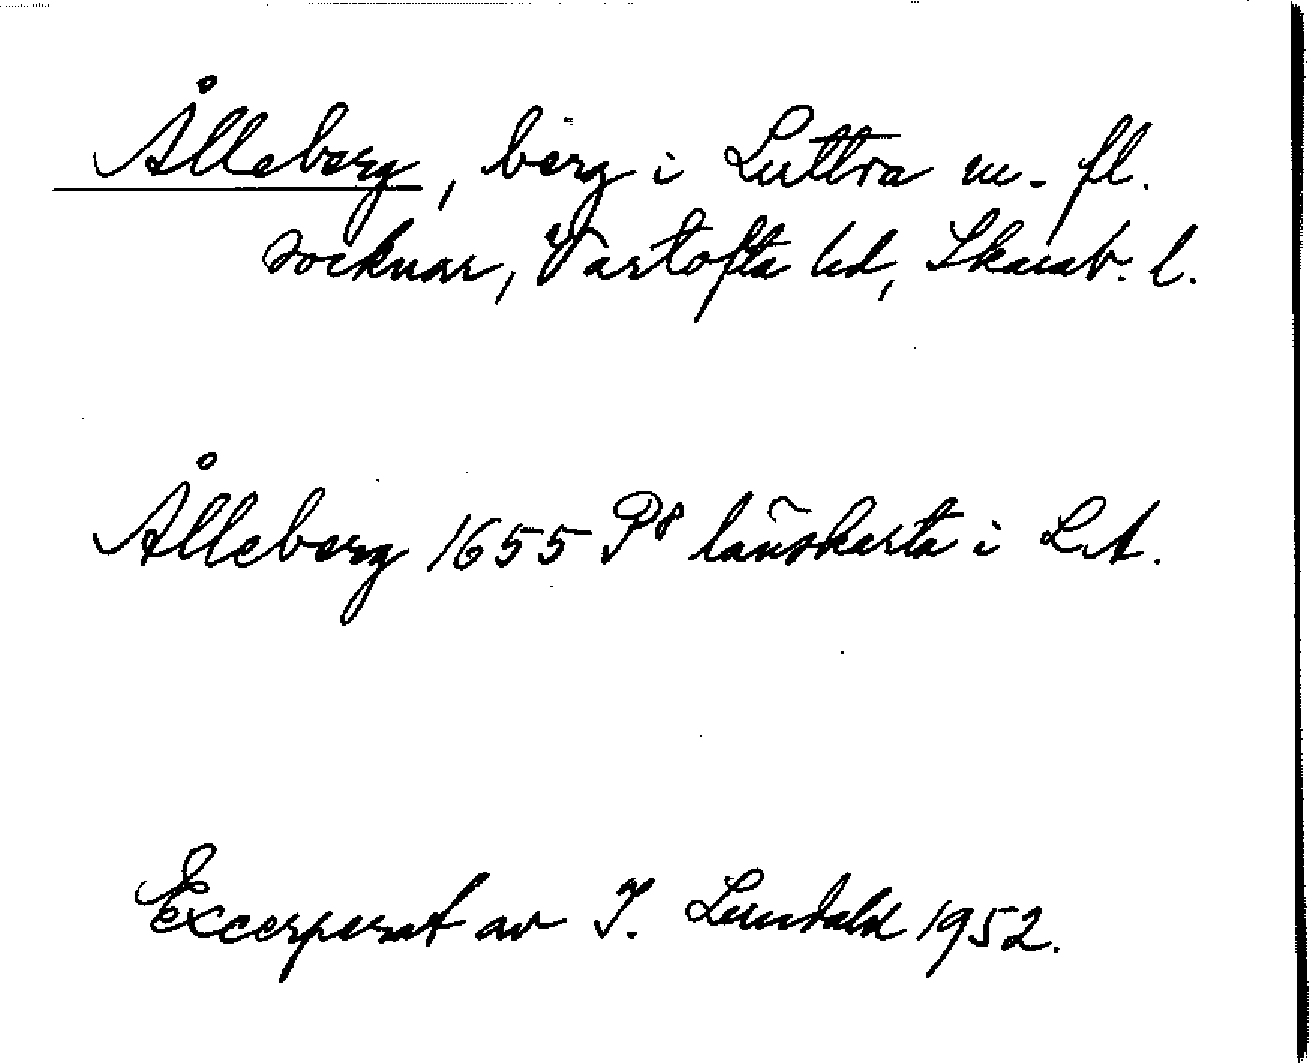 Ålleberg, berg i Luttra m. fl.
socknar, Vartofta hd, Skarab. l.
Ålleberg 1655 P8 länskarta i LA.
Excerperat av I. Lundahl 1952.